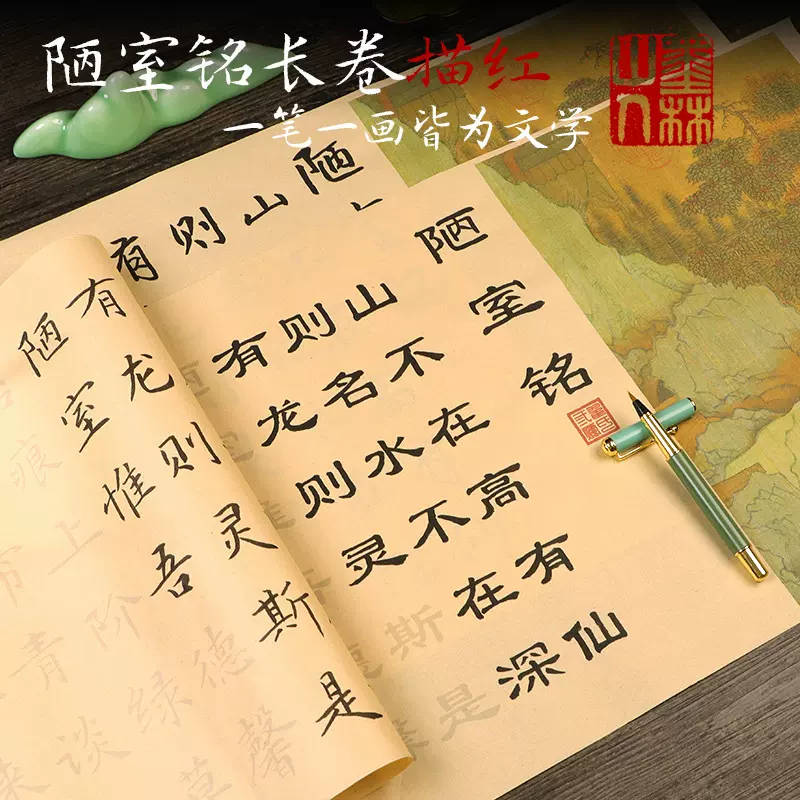 陋室铭长卷描红
一笔一画皆为文学
陋
山
则
有
陋室铭
山不在高有仙
则名水不在深
有龙则灵斯是
有龙则灵斯是
陋室惟吾德馨
痕上阶绿草
帘青谈